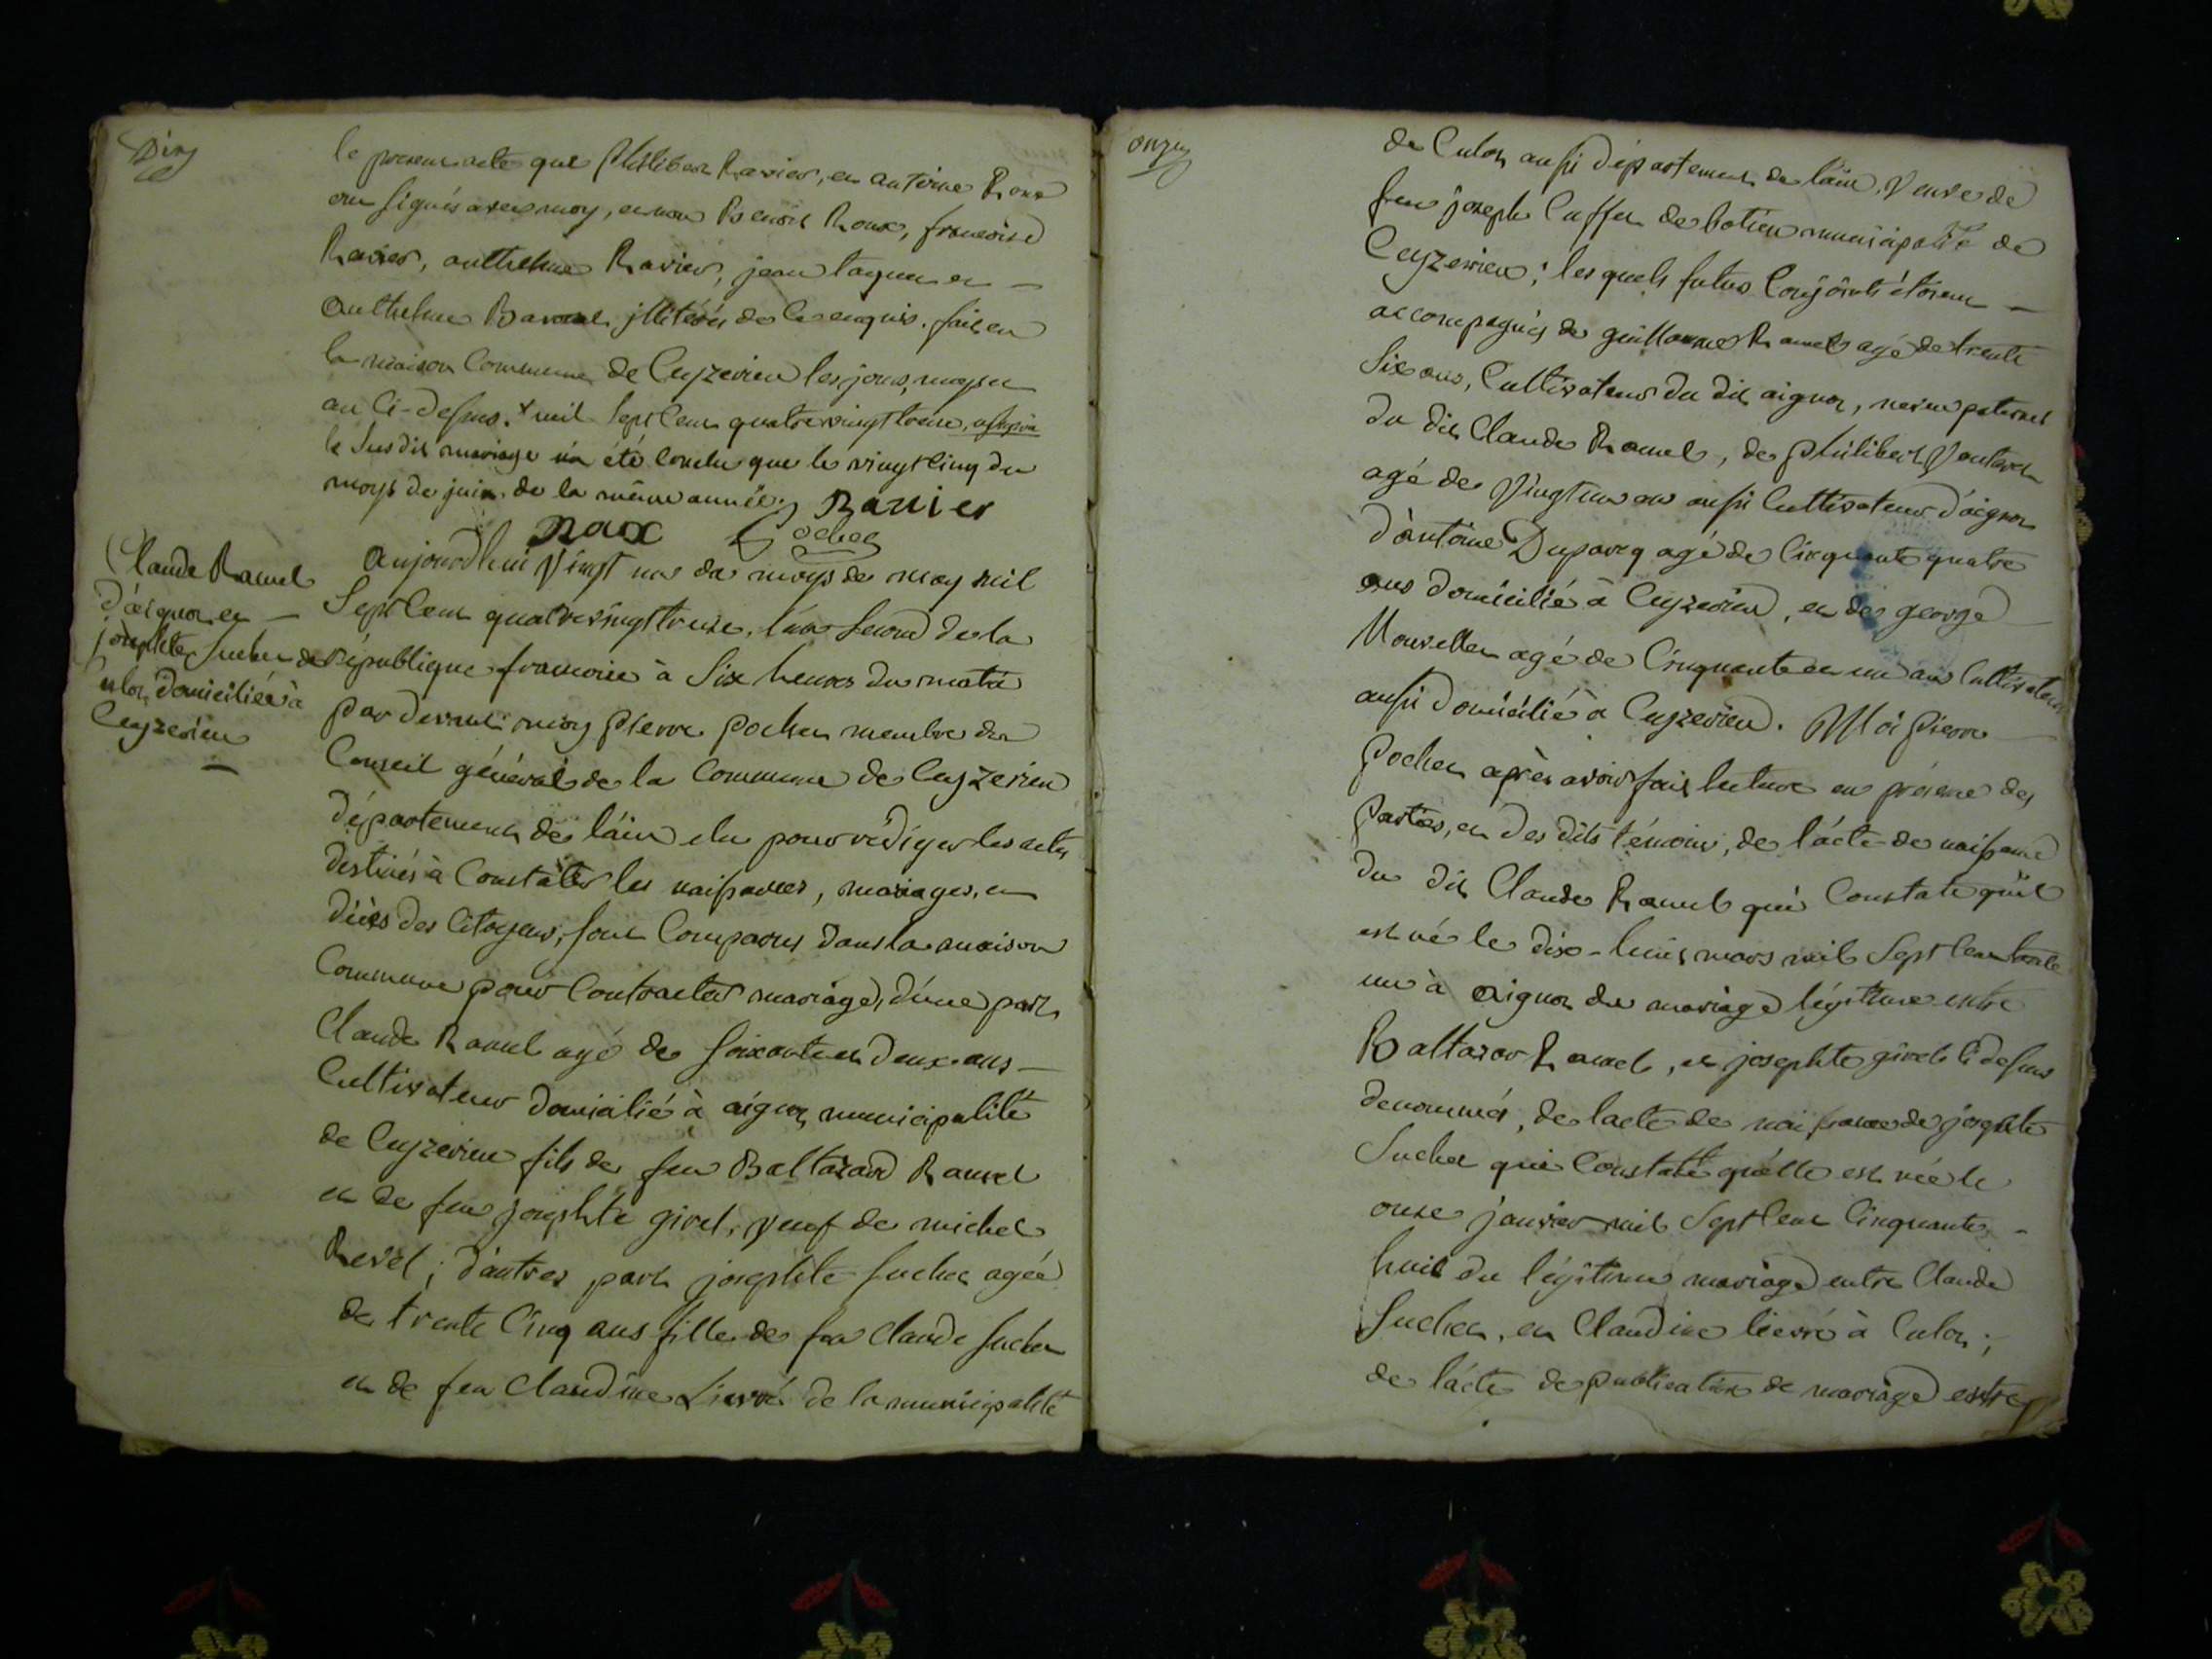 Dix
le present acte que philiber Ravier, et antoine Roux
ont signés avec moy, et non Benoit Roux, francoise
Ravier, anthelme Ravier, jean taquet et
anthelme Bavoul jllitérés de ce enquis. fait en
la maison Commune de Ceyzerieu les jours, moys et
an Ci-dessus. + mil sept cent quatrevingt treize,
le susdit mariage n'a été conclu que le vingt cinq du
moys de juin de la même année, Ravier
Roux Pochet
Claude Ramel
d'aignoz et
josephte Suchet de
Culoz, domiciliée à
Ceyzerieu
aujourdhui Vingt un du moys de may mil
Sept cent quatrevingt treize, l'an second de la
république francoise à Six heures du matin
par devant moy pierre pochet membre du
Conseil général de la Commune de Ceyzerieu
département de l'ain elu pour rédiger les actes
destinés à Constater les naissances, mariages, et
décès des Citoyens, sont Comparus dans la maison
Commune pour Contracter mariage, d'une part
Claude Ramel agé de soixante et deux ans
Cultivateur domicilié à aignoz municipalité
de Ceyzerieu fils de feu Baltazard Ramel
et de feu josephte girel, veuf de michel
Revel; d'autre part josephte Suchet agée
de trente Cinq ans fille de feu Claude Suchet
et de feu Claudine Lievré de la municipalité
onze
de Culoz aussi département de l'ain, Veuve de
feu joseph Cuffet de botieu municipalité de
Ceyzerieu; les quels futurs Conjoints étoient
accompagnés de guillaume Ramel agé de trente
Six ans, Cultivateur du dit aignoz, neveu paternel
du dit Claude Ramel, de philibert Ventaret
agé de Vingt un ans aussi Cultivateur d'aignoz
d'antoine Duparcq agé de Cinquante quatre
ans domicilié à Ceyzerieu, et de george
Mouvellet agé de Cinquante et un ans Cultivateur
aussi domicilié à Ceyzerieu. Moi pierre
Pochet après avoir fait lecture en présence des
parties, et des dits témoins, de l'acte de naissance
du dit Claude Ramel qui Constate qu'il
est né le dix-huit mars mil Sept Cent trente
un à aignoz du mariage légitime entre
Baltazar Ramel, et josephte girel Ci dessus
denommés, de lacte de naissance de josephte
Suchet qui Constate qu'elle est née le
onze janvier mil Sept Cent Cinquante
huit du légitime mariage entre Claude
Suchet, et Claudine lievré à Culoz;
de l'acte de publication de mariage entre